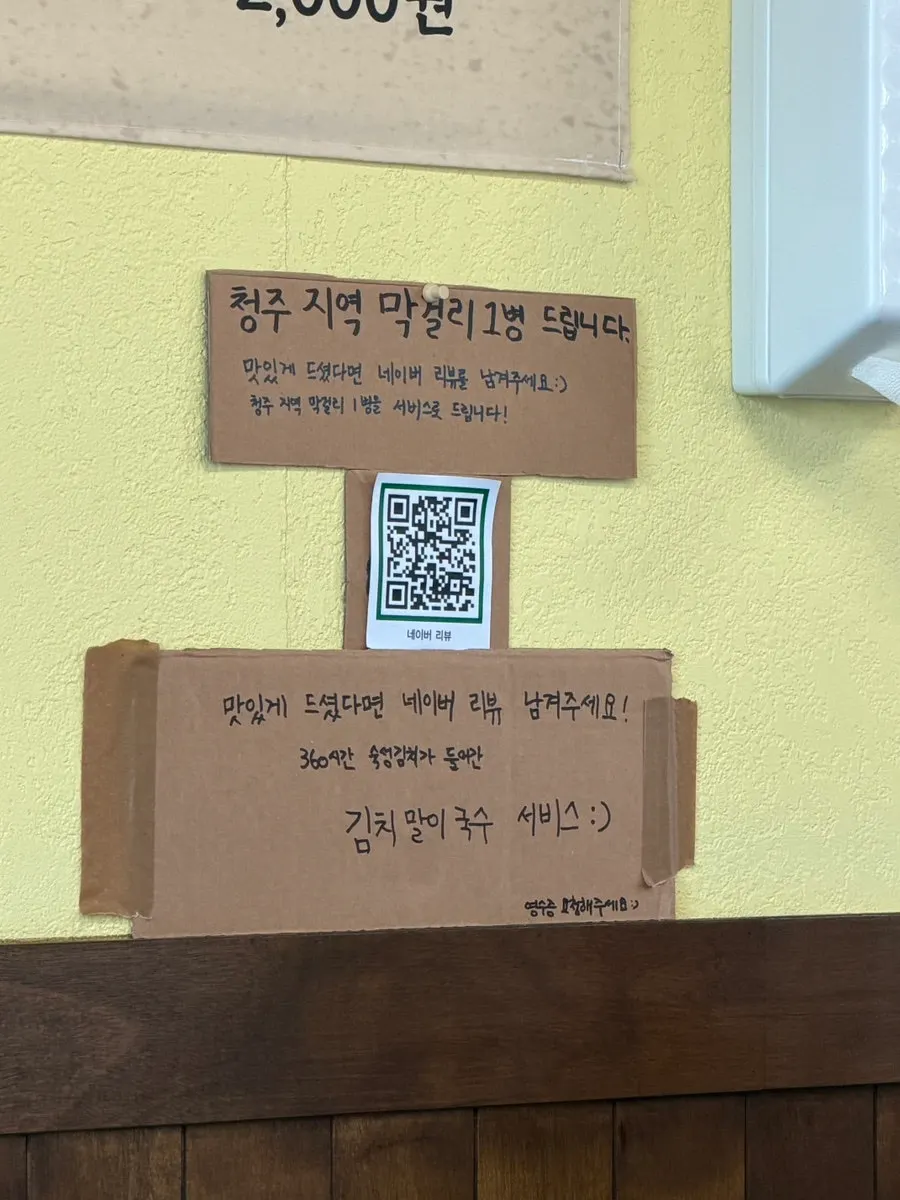 2,000원
청주 지역 막걸리 1병 드립니다.
맛있게 드셨다면 네이버 리뷰를 남겨주세요:)
청주 지역 막걸리 1병을 서비스로 드립니다!
네이버 리뷰
맛있게 드셨다면 네이버 리뷰 남겨주세요!
360시간 숙성김치가 들어간
김치말이국수 서비스:)
영수증 요청해주세요:)